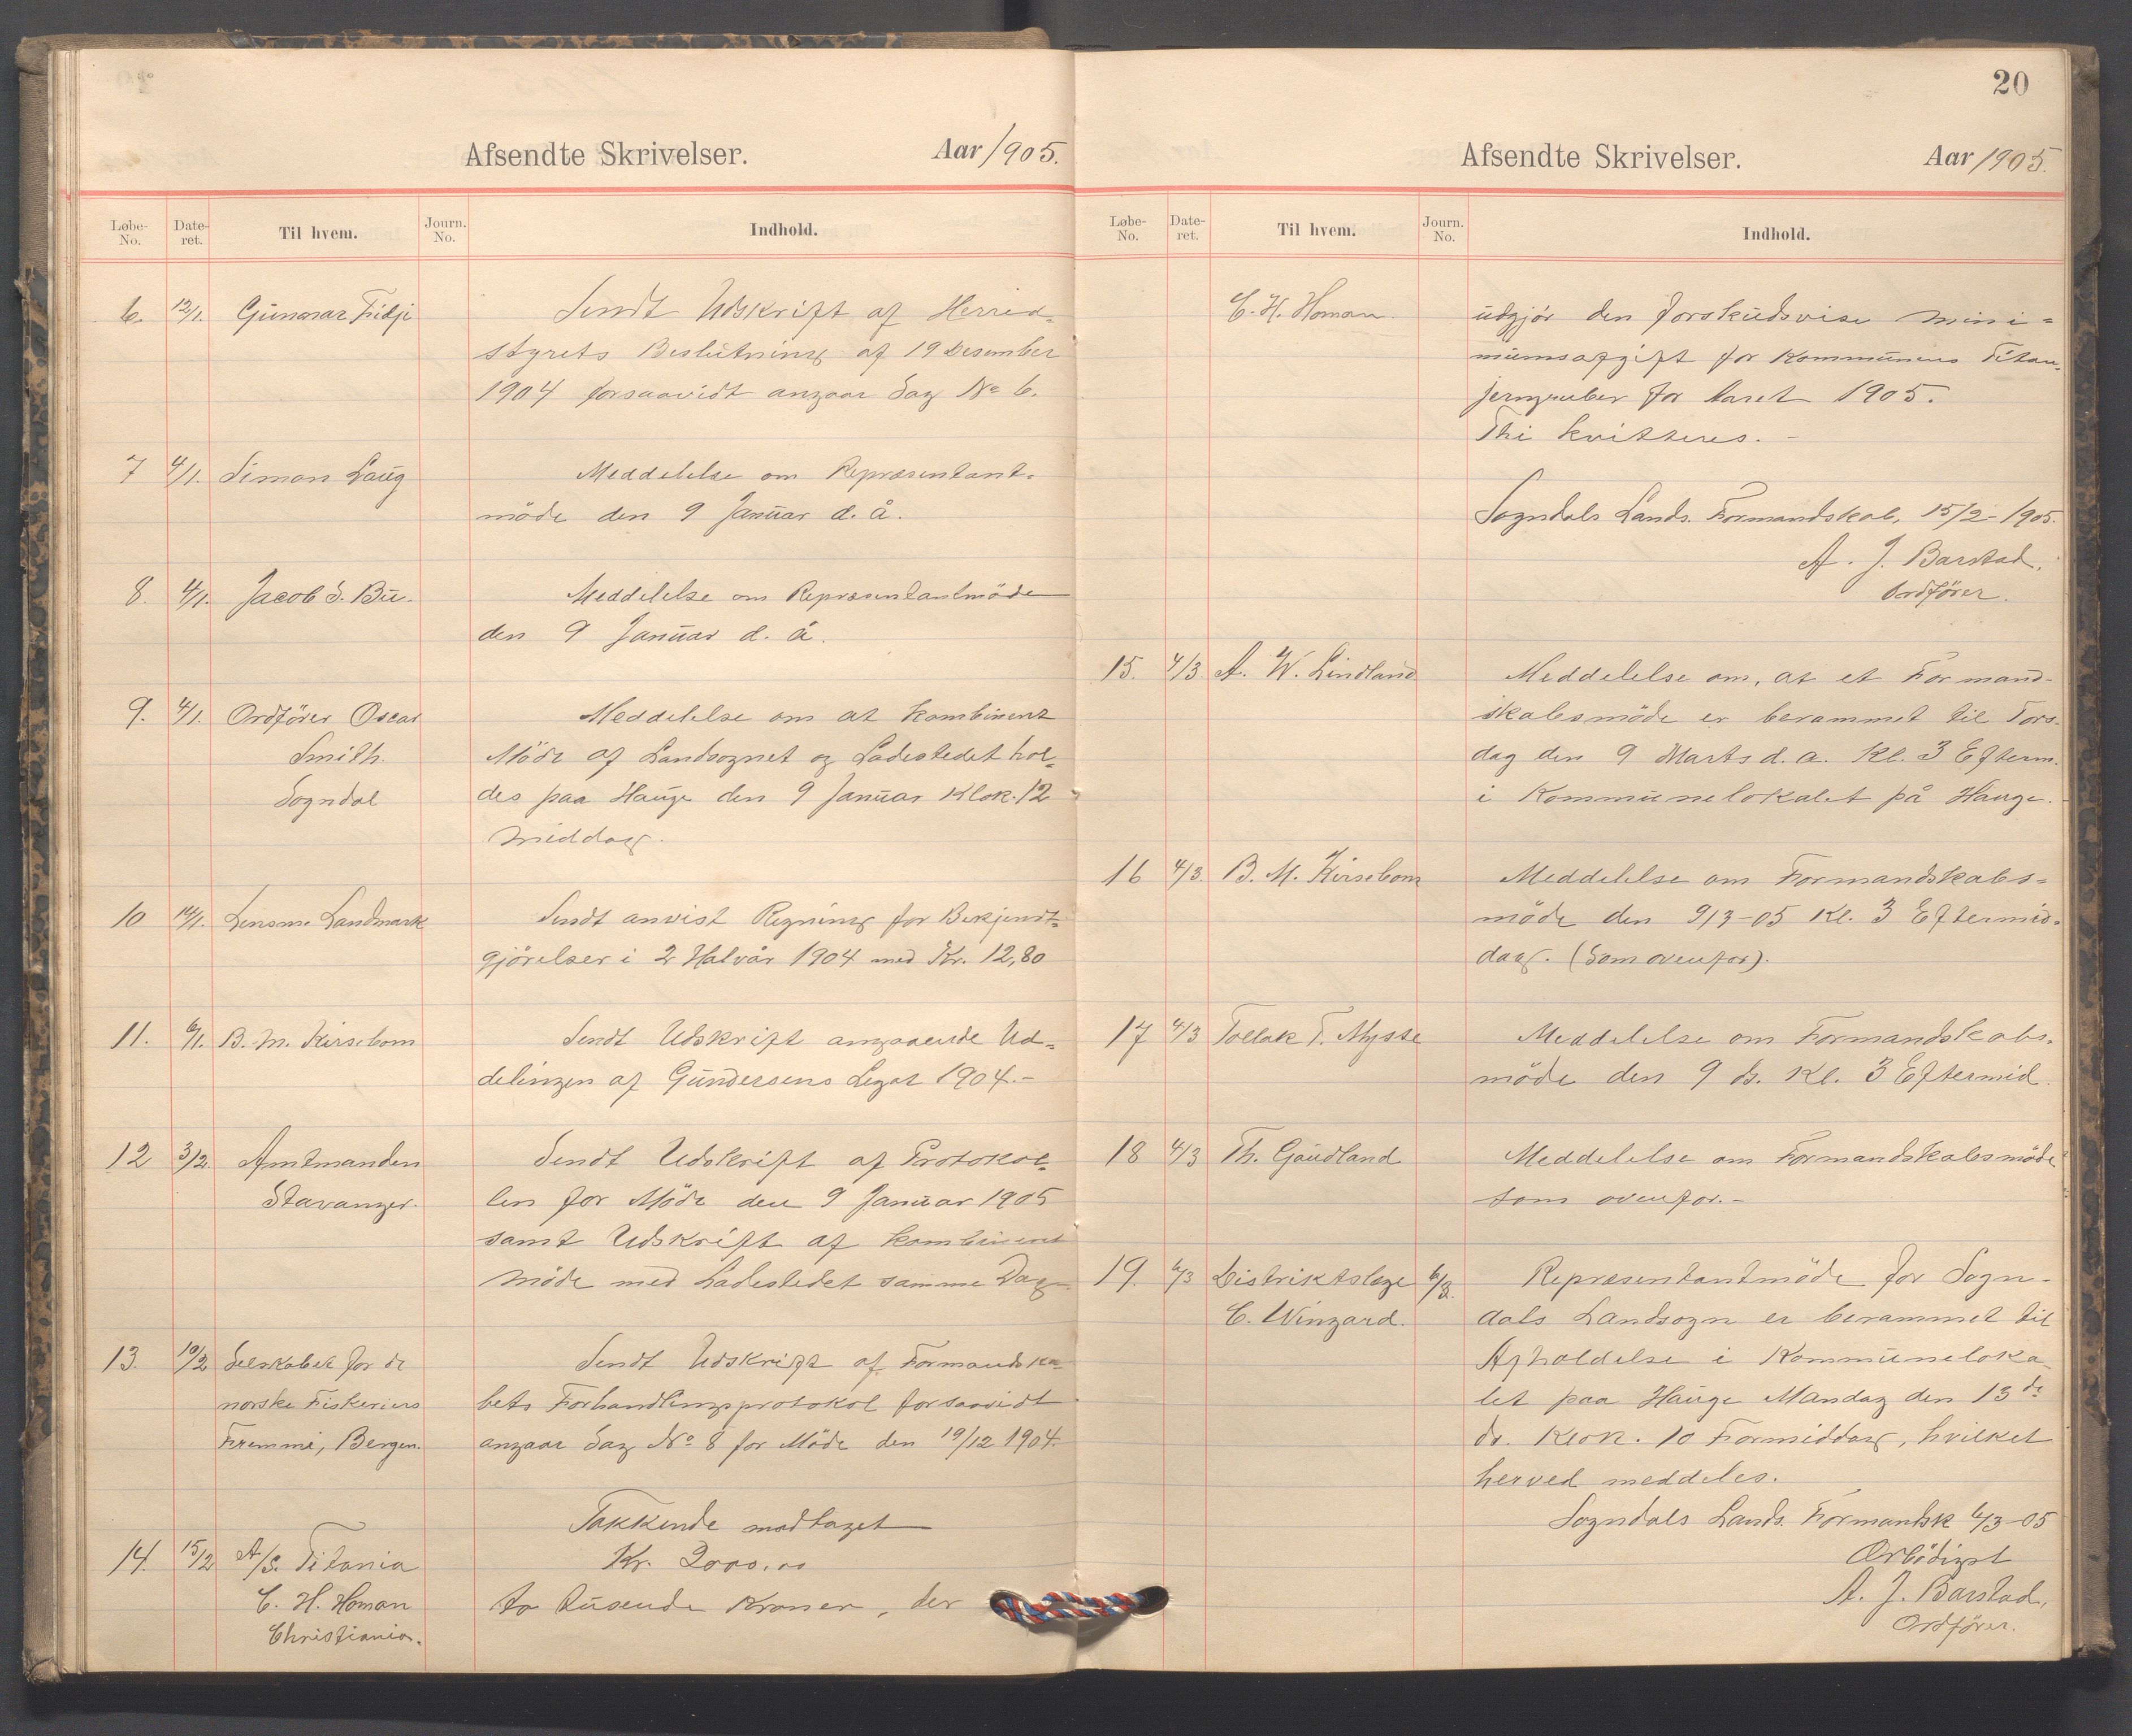 Afsendte Skrivelser. Aar 1905.
Løbe-No. Date-ret. Til hvem. Journ. No. Indhold.
6. 12/1. Gunnar Fidje Sendt Udskrift af Herred-
styrets Beslutning af 19 Desember
1904 forsaavidt angaar Sag No 6.
7 4/1. Simon Laug Meddelelse om Repræsentant-
möde den 9 Januar d. å.
8. 4/1. Jacob S. Bu. Meddelelse om Repræsentantmöde
den 9 Januar d. å.
9. 4/1. Ordförer Oscar Meddelelse om at kombinert
Smith. Möde af Landsognet og Ladestedet hol-
Sogndal des paa Hauge den 9 Januar Klok. 12
middag.
10 14/1. Lensm. Landmark Sendt anvist Regning for Bekjendt-
gjörelser i 2 Halvår 1904 med Kr. 12,80
11. 6/1. B. M. Kirsebom Sendt Udskrift angaaende Ud-
delingen af Gundersens Legat 1904.-
12 3/2. Amtmanden Sendt Udskrift af Protokol-
Stavanger. len for Möde den 9 Januar 1905
samt Udskrift af kombinert
möde med Ladestedet samme Dag
13. 10/2 Selskabet for de Sendt Udskrift af Formandska-
norske Fiskeriers bets Forhandlingsprotokol forsaavidt
Fremme, Bergen. angaar Sag No 8 for Möde den 19/12 1904.
Takkende modtaget
14. 15/2 A/S. Titania Kr. 2000.00
C. H. Homan to tusende Kroner, der
Christiania.
20
Afsendte Skrivelser. Aar 1905.
Løbe-No. Date-ret. Til hvem. Journ. No. Indhold.
C. H. Homan. udgjör den forskudsvise mini-
mumsafgift for Kommunens Titan-
jerngruber for Aaret 1905.
Thi kvitteres. -
Sogndals Lands. Formandskab, 15/2-1905.
A. J. Barstad,
Ordförer.
15. 4/3 A. W. Lindland Meddelelse om, at et Formand-
skabsmöde er berammet til Tors-
dag den 9 Marts d. a. Kl. 3 Efterm.
i Kommunelokalet på Hauge.
16 4/3. B. M. Kirsebom Meddelelse om Formandskabs-
möde den 9/3-05 Kl. 3 Eftermid-
dag. (Som ovenfor).
17 4/3 Tollak T. Mysse Meddelelse om Formandskabs-
möde den 9 ds. Kl. 3 Eftermid.
18 4/3 Th. Gaudland Meddelelse om Formandskabsmöde
som ovenfor.-
19. 6/3 Distriktslæge 6/3. Repræsentantmöde for Sogn-
C. Wingard. dals Landsogn er berammet til
Afholdelse i Kommuneloka-
let paa Hauge Mandag den 13de
ds. Klok. 10 Formiddag, hvilket
herved meddeles.
Sogndals Lands. Formandsk 6/3-05
Ærbödigst
A. J. Barstad,
Ordförer.